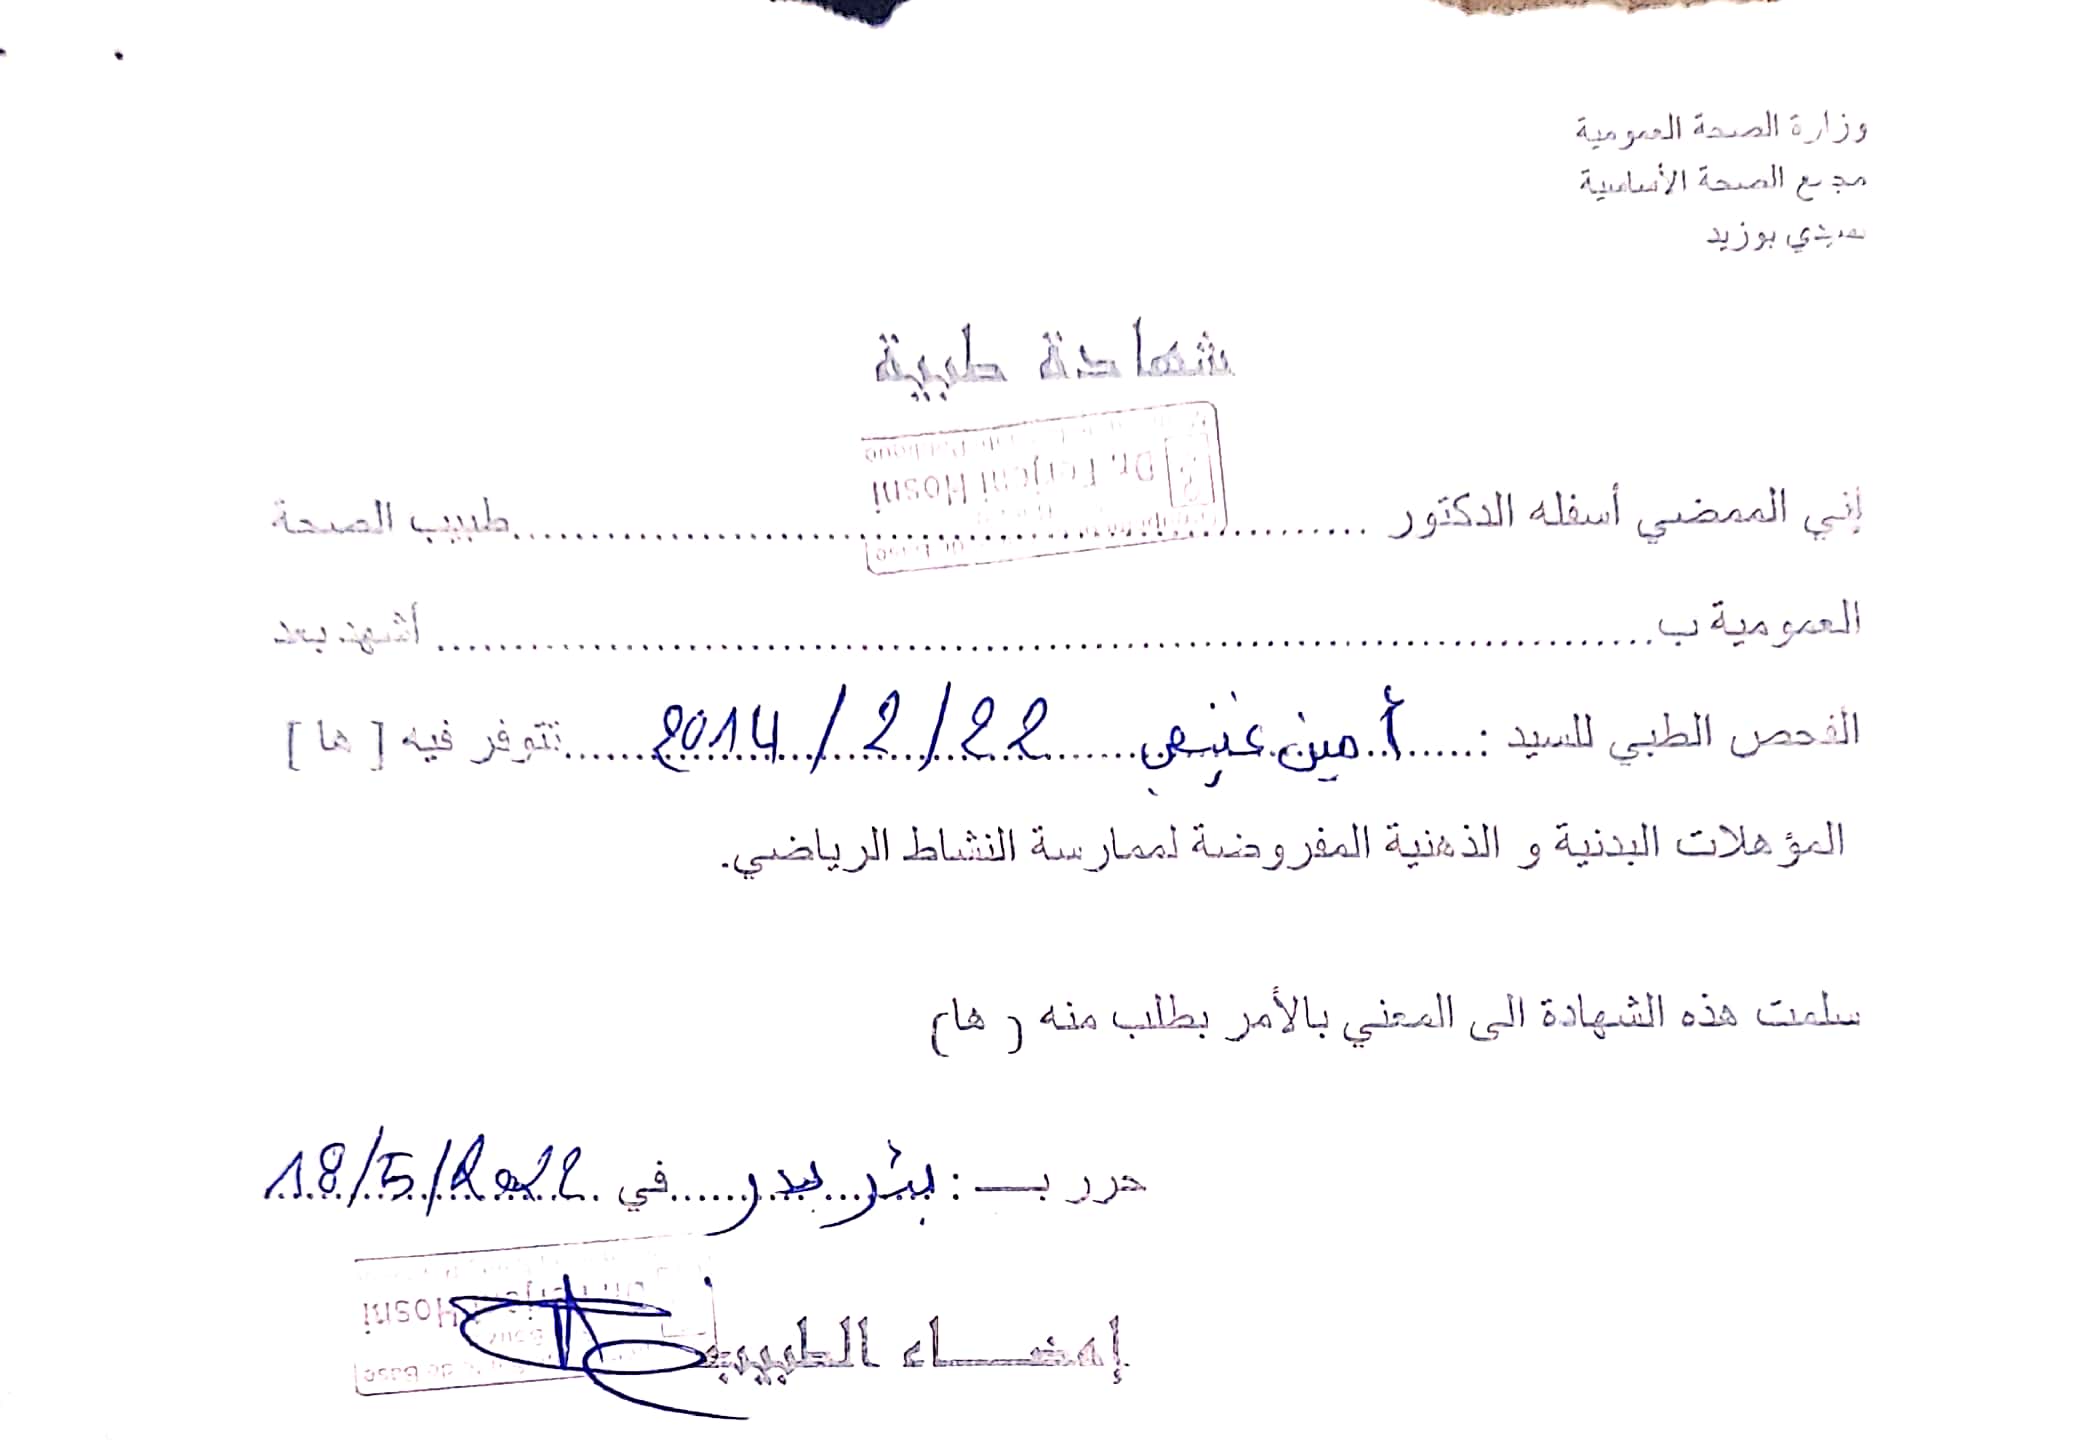 وزارة الصحة العمومية
مجمع الصحة الأساسية
سيدي بوزيد
شهادة طبية
Dr. Ferjeni Hosni
إني الممضي أسفله الدكتور ........................ طبيب الصحة
العمومية ب........................ أشهد بعد
الفحص الطبي للسيد : أمين 22/2/2014 تتوفر فيه [ ها ]
المؤهلات البدنية و الذهنية المفروضة لممارسة النشاط الرياضي.
سلمت هذه الشهادة الى المعني بالأمر بطلب منه ( ها)
حرر بـ : بئر بدر في 18/5/2022
Hosni
إمضاء الطبيب
de Base